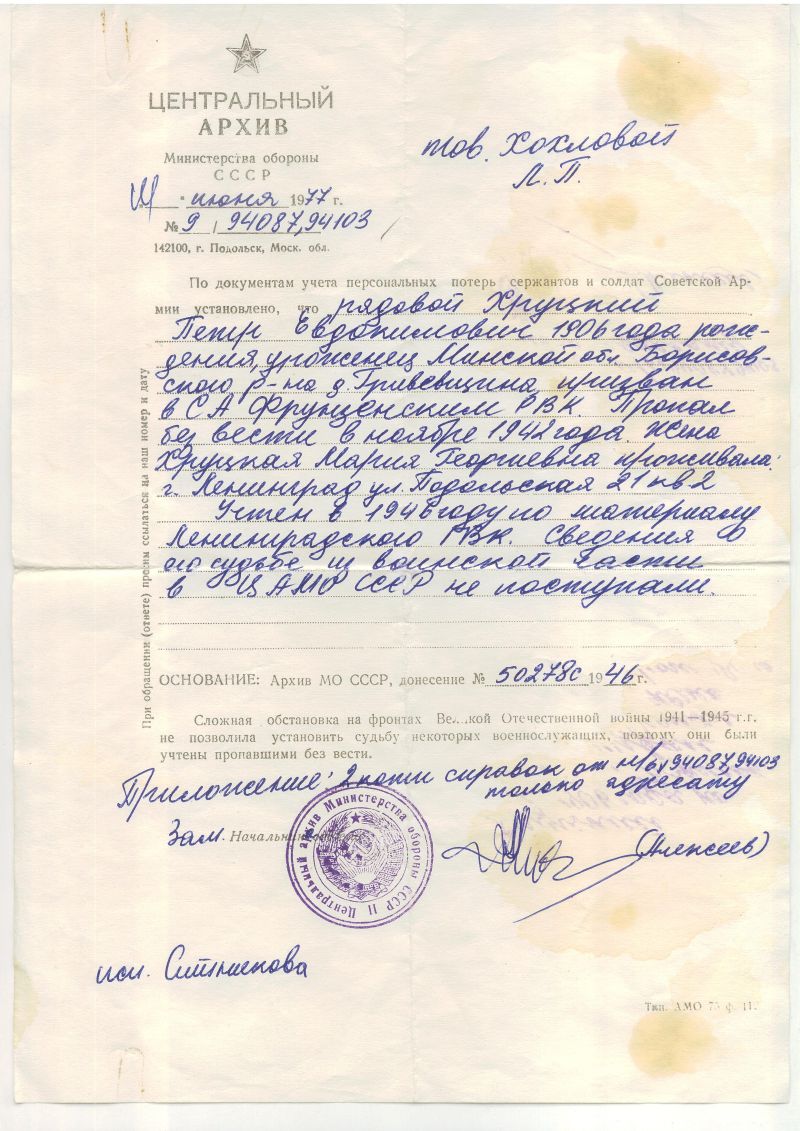 ЦЕНТРАЛЬНЫЙ
АРХИВ
Министерства обороны
СССР
июня 1977 г.
№ 9 / 94087,94103
142100, г. Подольск, Моск. обл.
тов. Хохловой
Л. П.
По документам учета персональных потерь сержантов и солдат Советской Ар-
мии установлено, что рядовой Хруцкий
Петр Евдокимович 1906 года рож-
дения, уроженец Минской обл. Борисов-
ского р-на д. призван
в СА Фрунзенским РВК. Пропал
без вести в ноябре 1942 года. Жена
Хруцкая Мария Георгиевна проживала:
г. Ленинград ул. Подольская 21 кв 2
Учтен в 1946 году по материалу
Ленинградского РВК. Сведения о
его судьбе из воинской части
в ЦАМО СССР не поступали.
При обращении (ответе) просим ссылаться на наш номер и дату
ОСНОВАНИЕ: Архив МО СССР, донесение № 50278с 1946 г.
Сложная обстановка на фронтах Великой Отечественной войны 1941—1945 г.г.
не позволила установить судьбу некоторых военнослужащих, поэтому они были
учтены пропавшими без вести.
Приложение: 2 справок от 94087,94103
только адресату
Зам. Начальник
(Алексеев)
Центральный архив Министерства обороны СССР
исп.